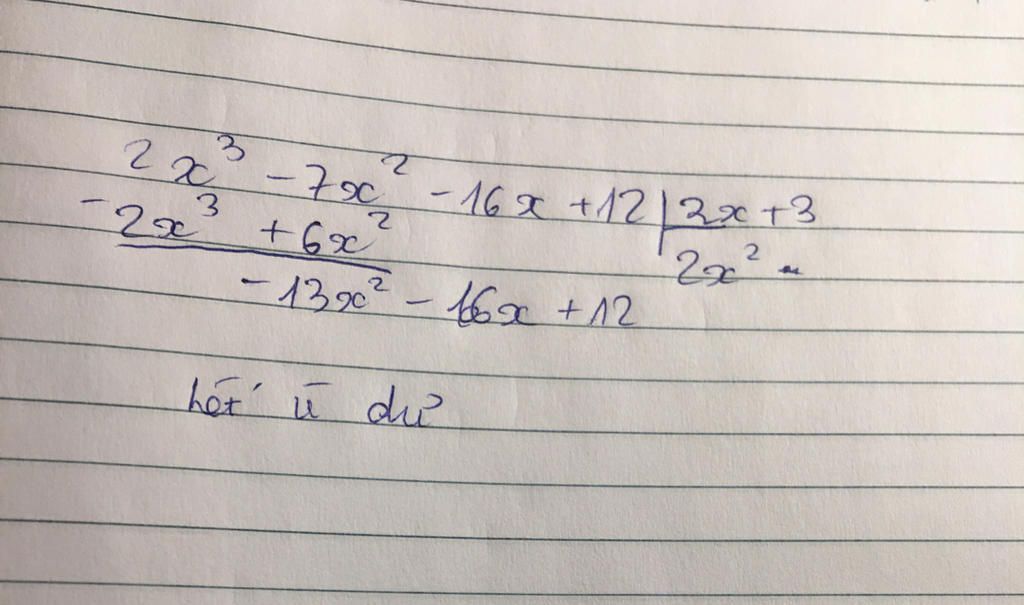 2x³ - 7x² - 16x + 12 | 2x + 3
- 2x³ + 6x² 2x² -
- 13x² - 16x + 12